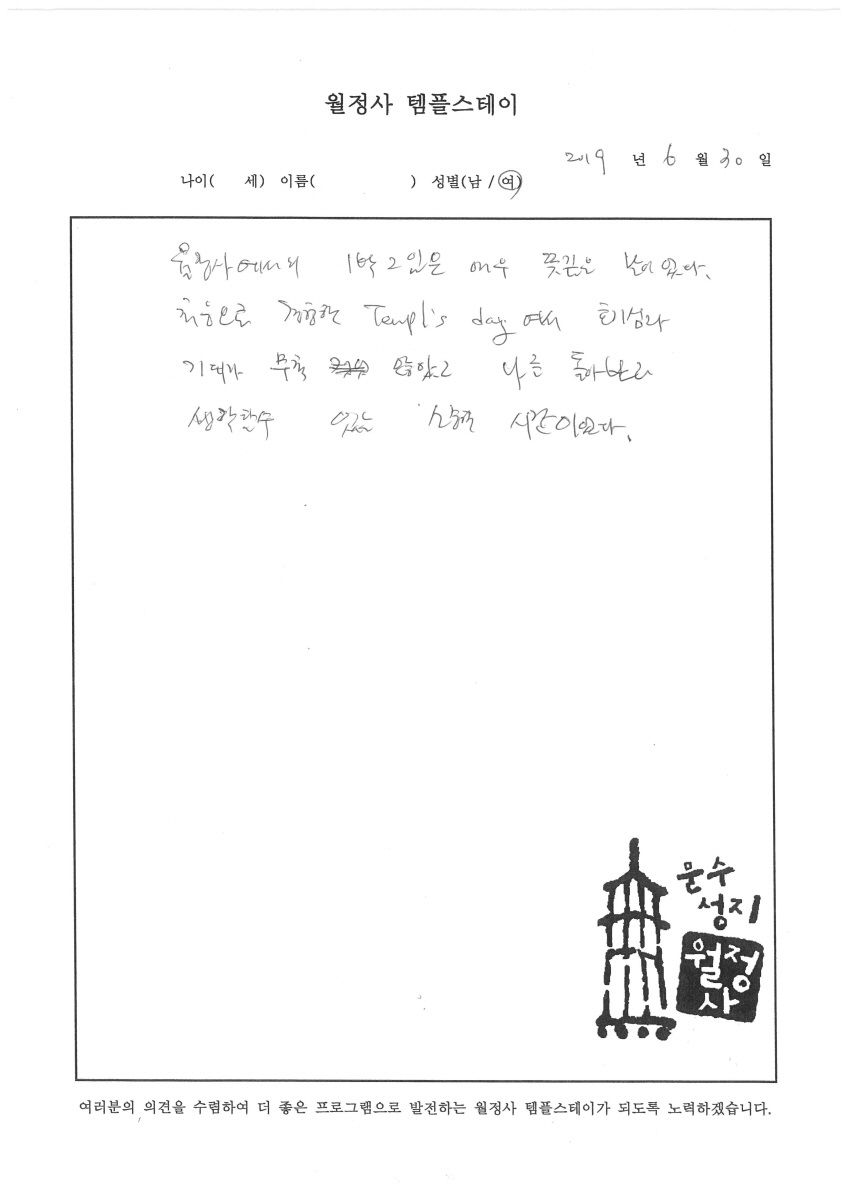 월정사 템플스테이
2019 년 6 월 30 일
나이( 세) 이름( ) 성별(남 / 여)
월정사에서의 1박 2일은 매우 뜻깊은 날이였다.
처음으로 경험한 Templ's day 여서 호기심과
기대가 무척 많았고 나를 돌아보고
생각할수 있는 소중한 시간이였다.
문수
성지
월정
사
여러분의 의견을 수렴하여 더 좋은 프로그램으로 발전하는 월정사 템플스테이가 되도록 노력하겠습니다.